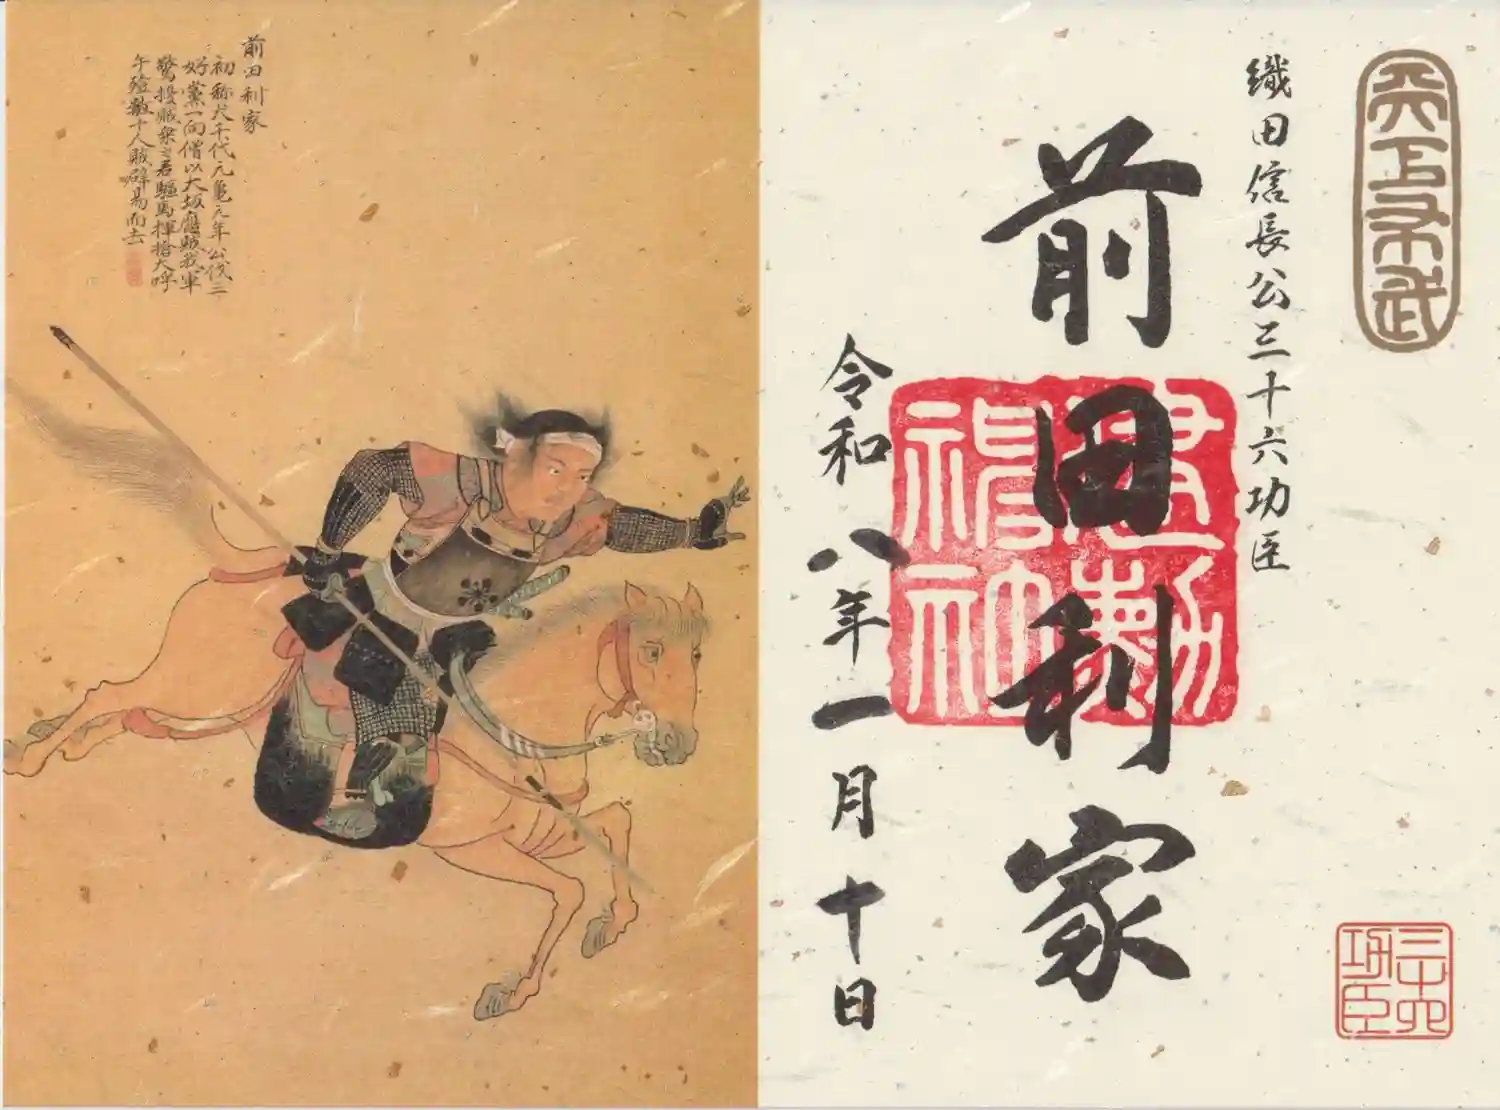 天下布武
織田信長公三十六功臣
前田利家
建勲
神社
令和八年一月十日
三十六
功臣
前田利家
初称犬千代元亀元年公伐三
好黨一向僧以大坂應賊我軍
驚擾賊乘之君驅馬揮槍大呼
手殪數十人賊辟易而去